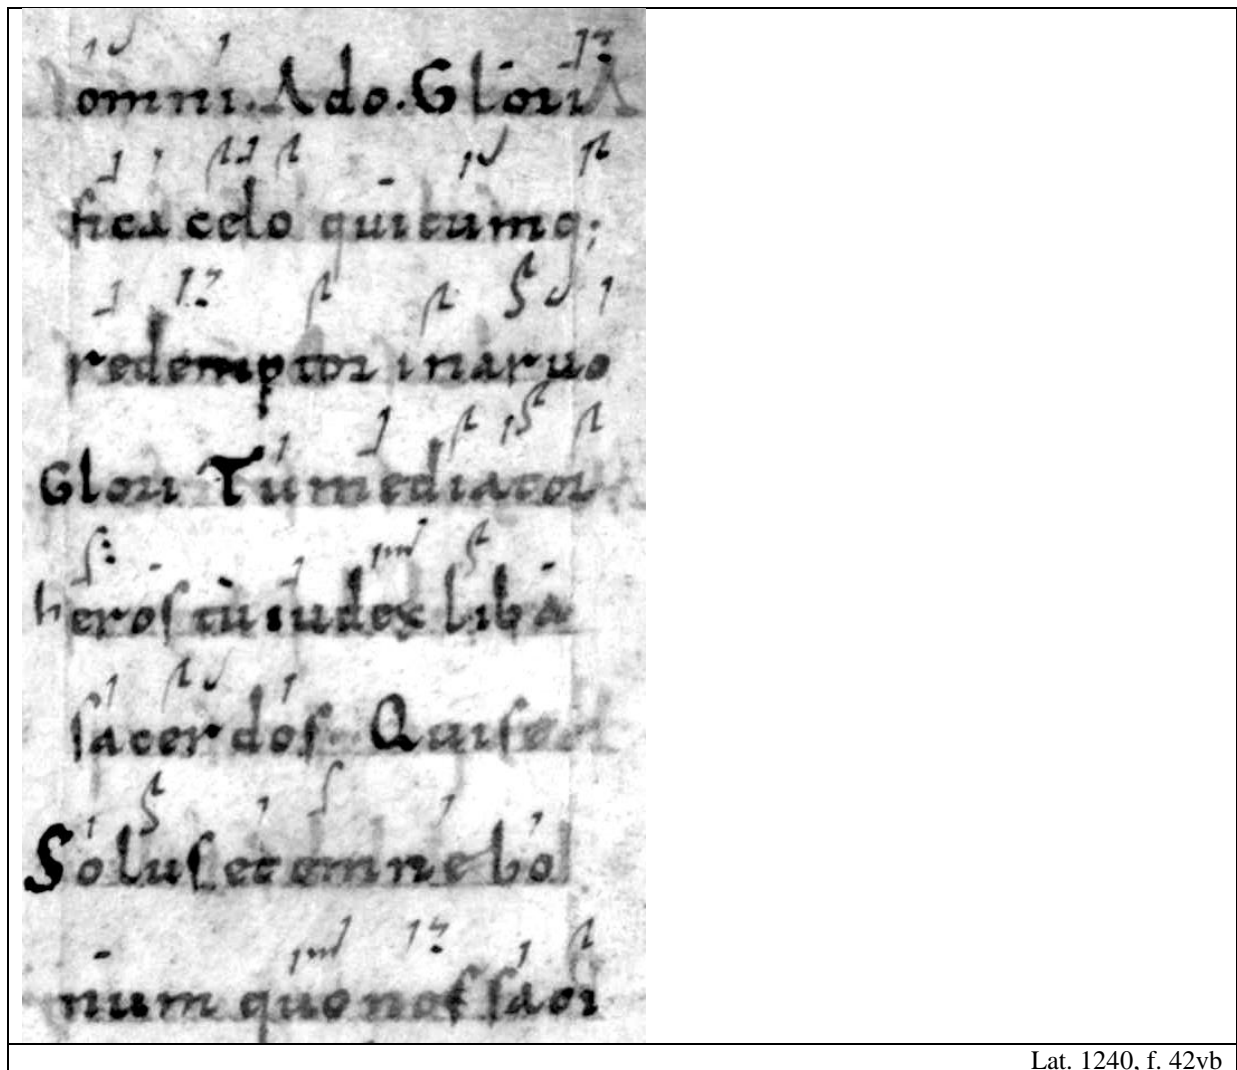 omni. Ado. GloriA
fica celo quitumq;
redemptor inaruo
Glori Tu mediator
heros tu iudex liba
sacerdos. Quised
Solus et omne bo
num quo nos sa
Lat. 1240, f. 42vb